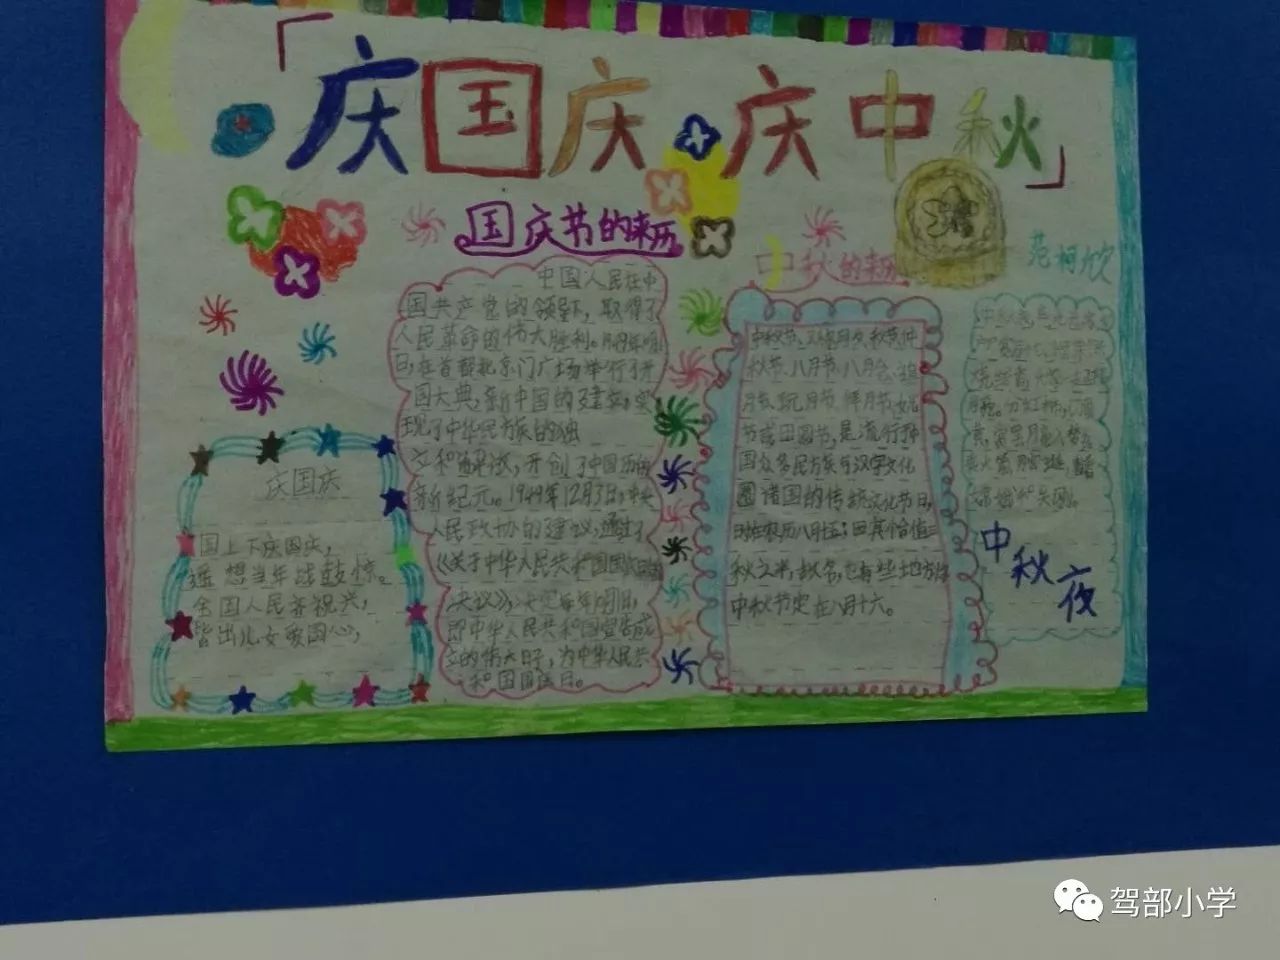 「庆国庆 庆中秋」
国庆节的来历
中秋的来历
范柯欣
中国人民在中
国共产党的领导下，取得了
人民革命的伟大胜利。
日，在首都北京门广场举行了开
国大典，新中国的建立，实
现了中华民族的独
立和解放，开创了中国历史
新纪元。1949年12月3日，中央
人民政协的建议，通过了
《关于中华人民共和国国庆日的
决议》，决定每年
即中华人民共和国宣告成
立的伟大日子，为中华人民共
和国国庆日。
庆国庆
国上下庆国庆，
遥想当年战鼓惊。
全国人民齐祝兴，
皆出儿女爱国心，
中秋节，又称月夕、秋节、仲
秋节、八月节、八月会、追
月节、玩月节、拜月节、女儿
节或团圆节，是流行于
国众多民族与汉字文化
圈诸国的传统文化节日，
时在农历八月十五；因其恰值三
秋之半，故名，也有些地方将
中秋节定在八月十六。
中秋夜
驾部小学